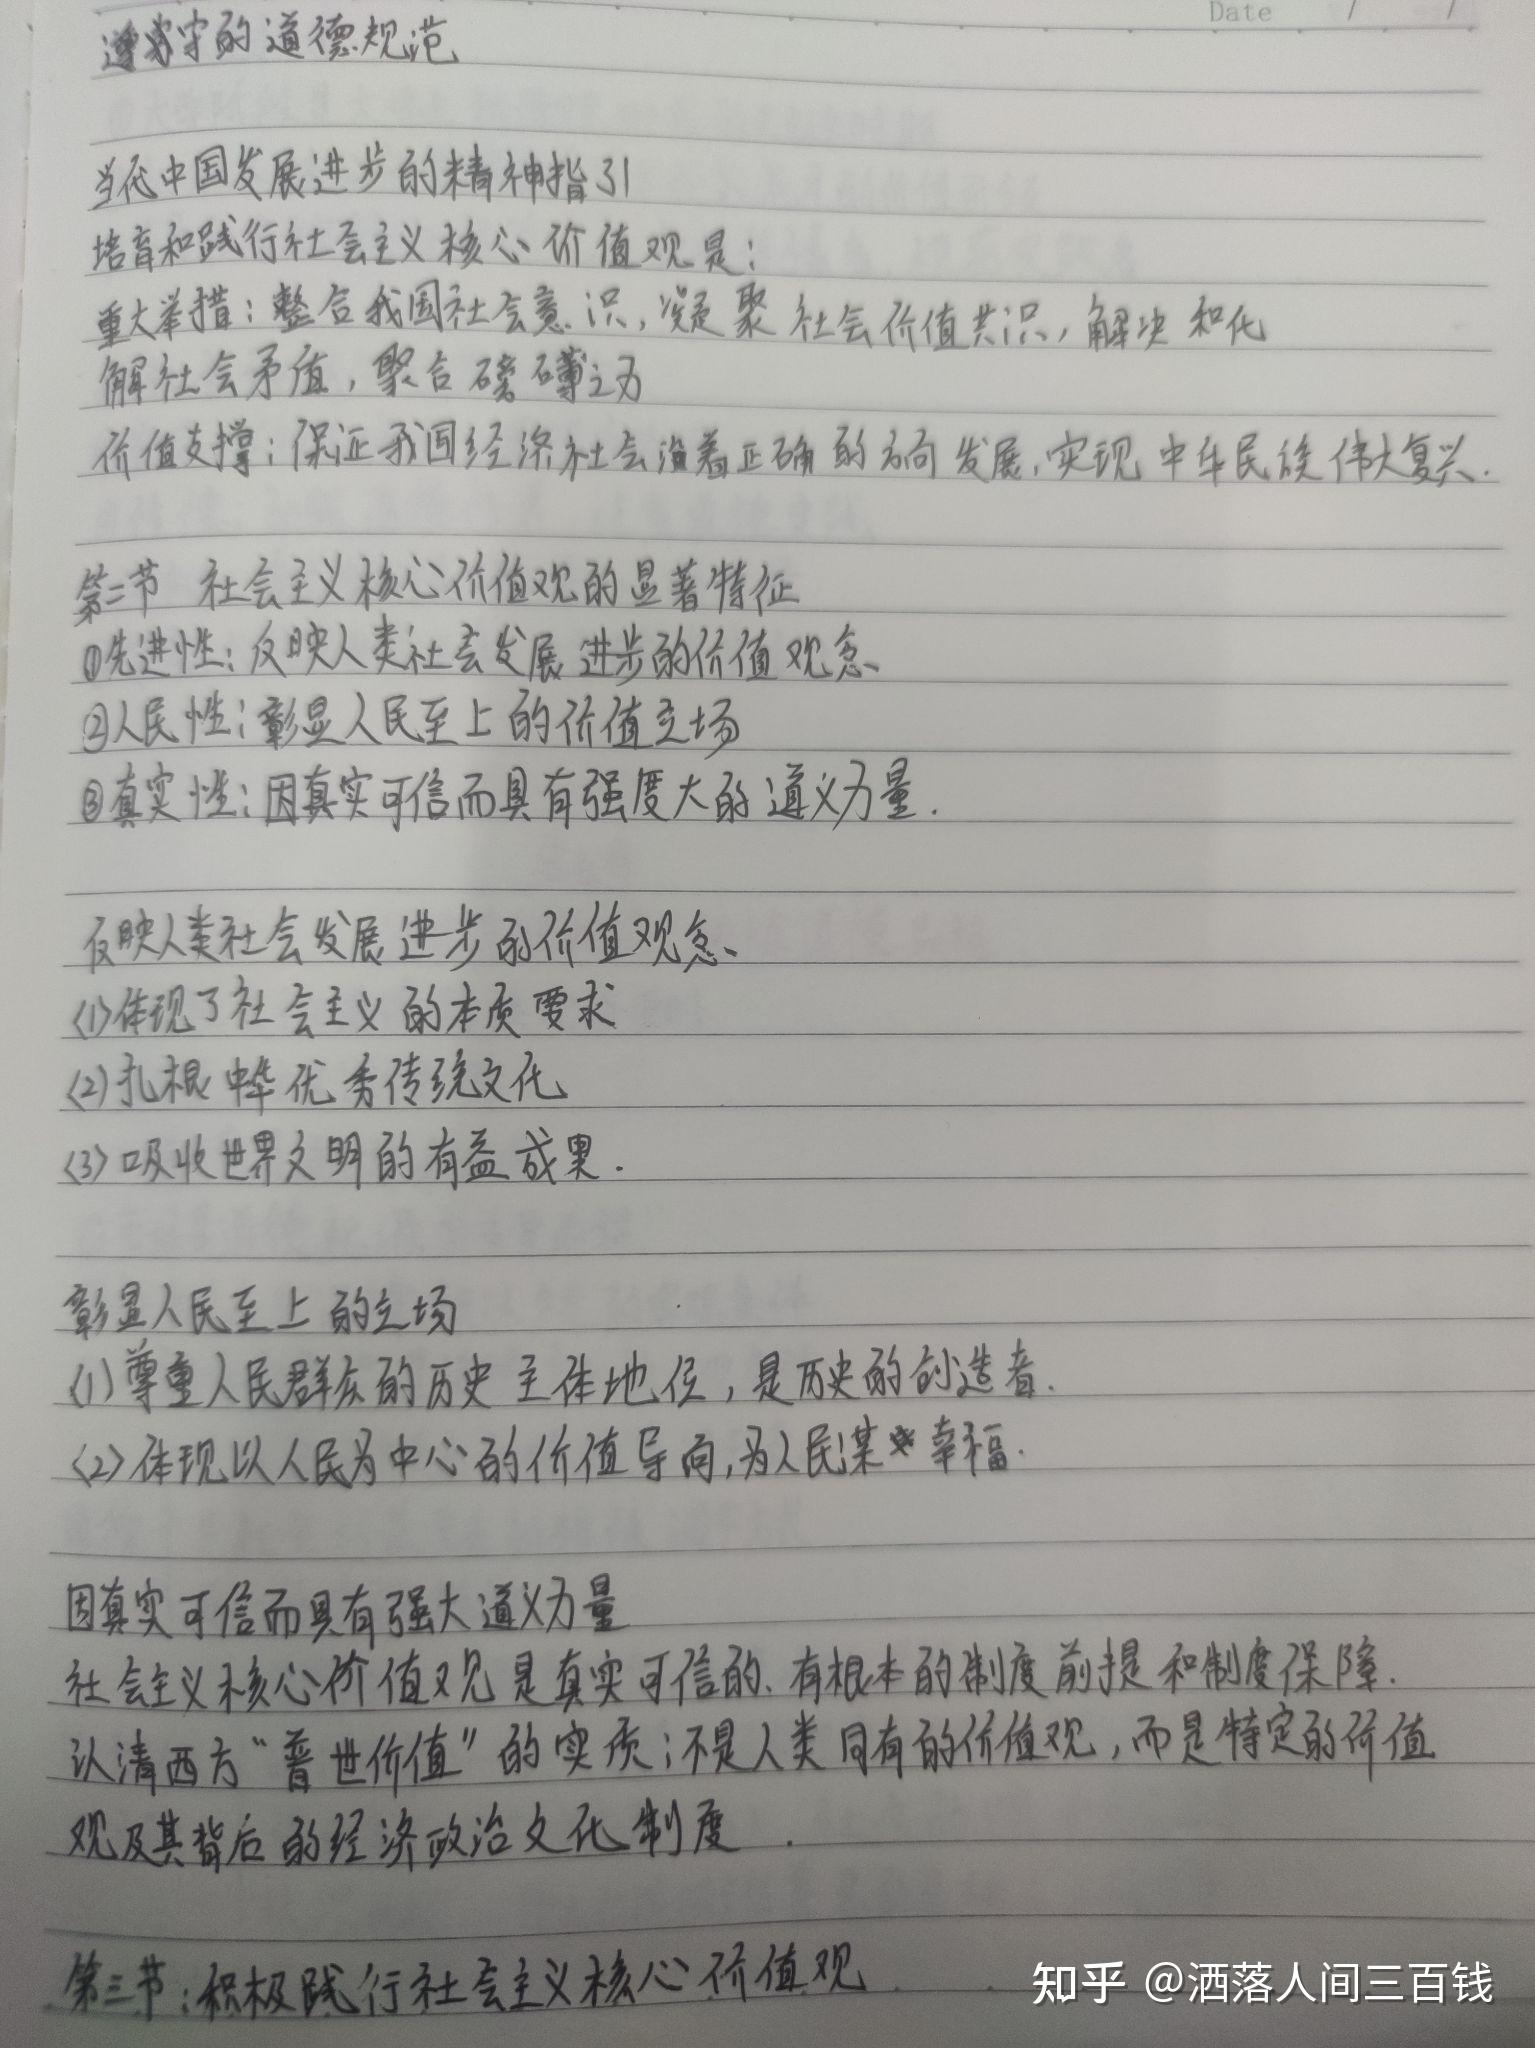 Date / /
遵守的道德规范
当代中国发展进步的精神指引
培育和践行社会主义核心价值观是：
重大举措：整合我国社会意识，凝聚社会价值共识，解决和化
解社会矛盾，聚合磅礴之力
价值支撑：保证我国经济社会沿着正确的方向发展，实现中华民族伟大复兴.
第二节 社会主义核心价值观的显著特征
①先进性：反映人类社会发展进步的价值观念、
②人民性：彰显人民至上的价值立场
③真实性：因真实可信而具有强度大的道义力量.
反映人类社会发展进步的价值观念、
(1)体现了社会主义的本质要求
(2)扎根中华优秀传统文化
(3)吸收世界文明的有益成果.
彰显人民至上的立场
(1)尊重人民群众的历史主体地位，是历史的创造者.
(2)体现以人民为中心的价值导向，为人民谋幸福.
因真实可信而具有强大道义力量
社会主义核心价值观是真实可信的、有根本的制度前提和制度保障.
认清西方“普世价值”的实质：不是人类同有的价值观，而是特定的价值
观及其背后的经济政治文化制度.
第三节：积极践行社会主义核心价值观
知乎 @洒落人间三百钱